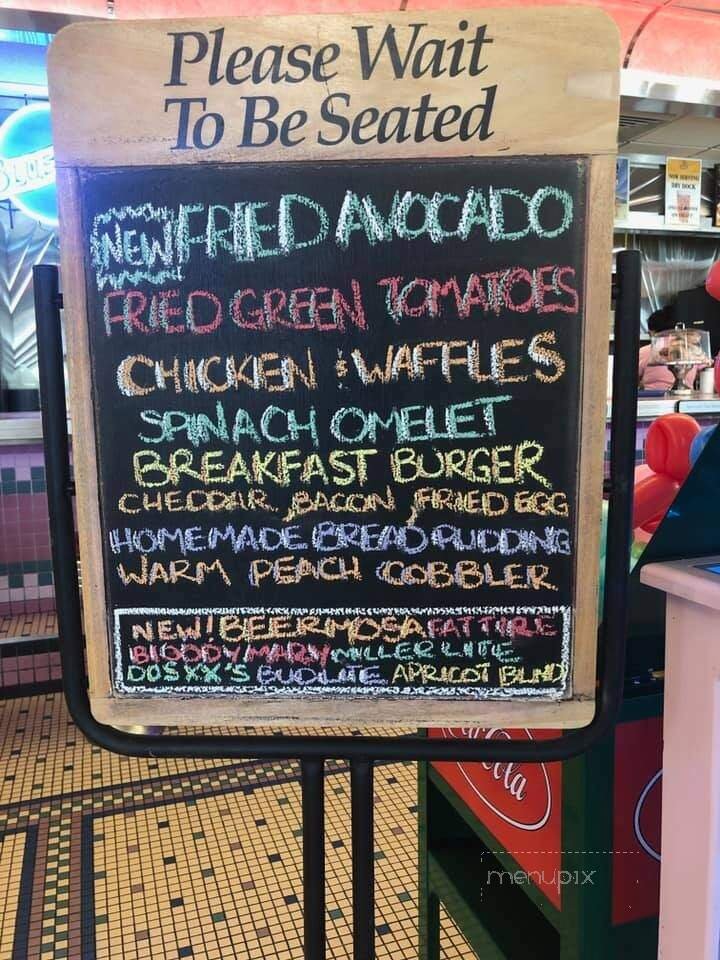 Please Wait
To Be Seated
NEW FRIED AVOCADO
FRIED GREEN TOMATOES
CHICKEN & WAFFLES
SPINACH OMELET
BREAKFAST BURGER
CHEDDAR, BACON, FRIED EGG
HOMEMADE BREAD PUDDING
WARM PEACH COBBLER
NEW! BEERMOSA FAT TIRE
BLOODY MARY MILLER LITE
DOS XX'S BUD LITE APRICOT BLND
NOW SERVING
DRY DOCK
menupix